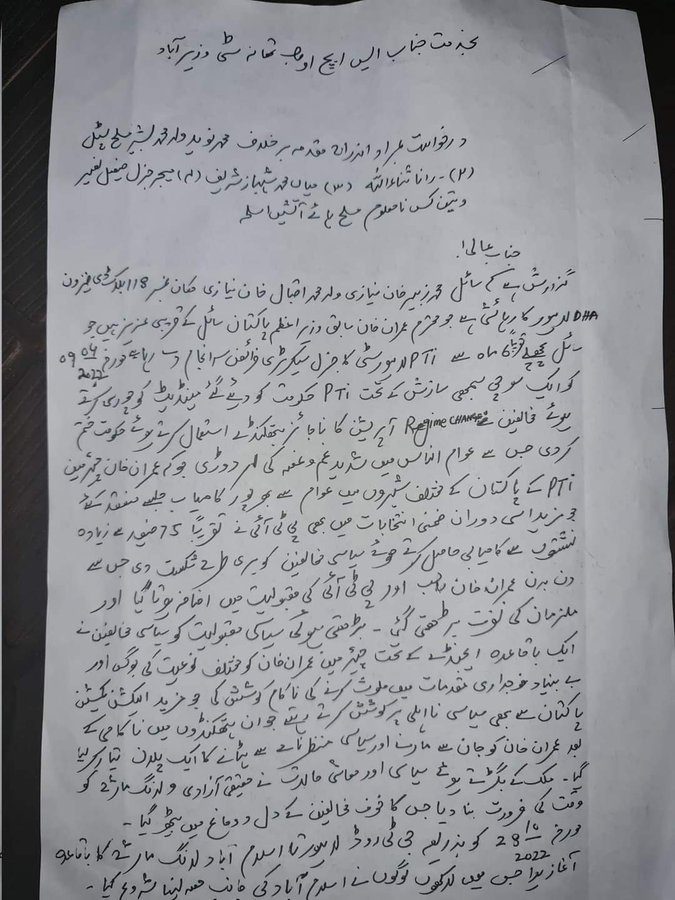 بخدمت جناب ایس ایچ او صاحب تھانہ سٹی وزیرآباد
درخواست بمراد اندراج مقدمہ برخلاف محمد نوید ولد محمد بشیر مسلح پسٹل
(۲)۔ رانا ثناءاللہ (۳) میاں محمد شہباز شریف (۴) میجر جنرل فیصل نصیر
و تین کس نامعلوم مسلح ہائے آتشیں اسلحہ
جناب عالی!
گزارش ہے کہ سائل محمد زبیر خان نیازی ولد محمد اقبال خان نیازی مکان نمبر 118 بلاک ڈی فیز ون
DHA لاہور کا رہائشی ہے جو محترم عمران خان سابق وزیراعظم پاکستان سائل کے قریبی عزیز ہیں جو
سائل تقریباً 6 ماہ سے PTI لاہور سٹی کا جنرل سیکرٹری فرائض سرانجام دے رہا ہے مورخہ 09 04 2022
کو ایک سوچی سمجھی سازش کے تحت PTI حکومت کو دیے گئے مینڈیٹ کو چوری کرتے
ہوئے مخالفین Regime CHANGE آپریشن کا ناجائز ہتھکنڈے استعمال کرتے ہوئے حکومت ختم
کردی جس سے عوام الناس میں شدید غم و غصہ کی لہر دوڑی جو کہ عمران خان چیئرمین
PTI کے پاکستان کے مختلف شہروں میں عوام سے بھرپور کامیاب جلسے منعقد کئے
جو مزید اسی دوران ضمنی انتخابات میں بھی پی ٹی آئی نے تقریباً 75 فیصد سے زیادہ
نشستوں سے کامیابی حاصل کرتے ہوئے سیاسی مخالفین کو بری طرح شکست دی جس سے
دن بدن عمران خان صاحب اور پی ٹی آئی کی مقبولیت میں اضافہ ہوتا گیا اور
ملزمان کی نفرت بڑھتی گئی۔ بڑھتی ہوئی سیاسی مقبولیت کو سیاسی مخالفین نے
ایک باقاعدہ ایجنڈے کے تحت چیئرمین عمران خان کو مختلف نوعیت کی بوگس اور
بے بنیاد فوجداری مقدمات میں ملوث کرنے کی ناکام کوشش کی جو مزید الیکشن کمیشن
پاکستان سے بھی سیاسی نااہلی پر کوشش کرتے رہے جو ان ہتھکنڈوں میں ناکامی کے
بعد عمران خان کو جان سے مارنے اور سیاسی منظرنامے سے ہٹانے کا ایک پلان تیار کیا
گیا۔ ملک کے بگڑتے ہوئے سیاسی اور معاشی حالات نے حقیقی آزادی و لانگ مارچ کو
وقت کی ضرورت بنا دیا جس کا خوف مخالفین کے دل و دماغ میں بیٹھ گیا۔
مورخہ 28 10 2022 کو بذریعہ جی ٹی روڈ لاہور تا اسلام آباد لانگ مارچ کا باقاعدہ
آغاز ہوا جس میں لاکھوں لوگوں نے اسلام آباد کی جانب حصہ لینا شروع کیا۔